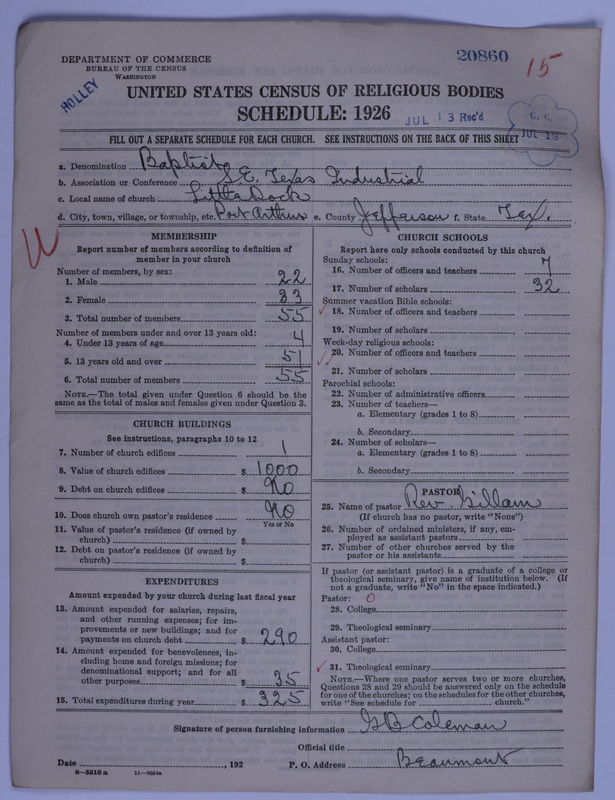 DEPARTMENT OF COMMERCE
BUREAU OF THE CENSUS
WASHINGTON
20860
15
HOLLEY
UNITED STATES CENSUS OF RELIGIOUS BODIES
SCHEDULE: 1926
JUL 13 Rec'd
C. C.
JUL 13
FILL OUT A SEPARATE SCHEDULE FOR EACH CHURCH. SEE INSTRUCTIONS ON THE BACK OF THIS SHEET
a. Denomination Baptist
b. Association or Conference S.E. Texas Industrial
c. Local name of church Little Rock
d. City, town, village, or township, etc. Port Arthur e. County Jefferson f. State Tex.
MEMBERSHIP
Report number of members according to definition of
member in your church
Number of members, by sex:
1. Male 22
2. Female 33
3. Total number of members 55
Number of members under and over 13 years old:
4. Under 13 years of age 4
5. 13 years old and over 51
6. Total number of members 55
NOTE.—The total given under Question 6 should be
same as the total of males and females given under Question 3.
CHURCH BUILDINGS
See instructions, paragraphs 10 to 12
7. Number of church edifices 1
8. Value of church edifices $ 1000
9. Debt on church edifices $ No
10. Does church own pastor's residence No
Yes or No
11. Value of pastor's residence (if owned by
church) $
12. Debt on pastor's residence (if owned by
church) $
EXPENDITURES
Amount expended by your church during last fiscal year
13. Amount expended for salaries, repairs,
and other running expenses; for im-
provements or new buildings; and for
payments on church debt $ 290
14. Amount expended for benevolences, in-
cluding home and foreign missions; for
denominational support; and for all
other purposes $ 35
15. Total expenditures during year $ 325
CHURCH SCHOOLS
Report here only schools conducted by this church
Sunday schools:
16. Number of officers and teachers 7
17. Number of scholars 32
Summer vacation Bible schools:
18. Number of officers and teachers
19. Number of scholars
Week-day religious schools:
20. Number of officers and teachers
21. Number of scholars
Parochial schools:
22. Number of administrative officers
23. Number of teachers—
a. Elementary (grades 1 to 8)
b. Secondary
24. Number of scholars—
a. Elementary (grades 1 to 8)
b. Secondary
PASTOR
25. Name of pastor Rev. Gillam
(If church has no pastor, write "None")
26. Number of ordained ministers, if any, em-
ployed as assistant pastors
27. Number of other churches served by the
pastor or his assistants
If pastor (or assistant pastor) is a graduate of a college or
theological seminary, give name of institution below. (If
not a graduate, write "No" in the space indicated.)
Pastor: 0
28. College
29. Theological seminary
Assistant pastor:
30. College
31. Theological seminary
NOTE.—Where one pastor serves two or more churches,
Questions 28 and 29 should be answered only on the schedule
for one of the churches; on the schedules for the other churches,
write "See schedule for church."
Signature of person furnishing information G B Coleman
Official title
Date , 192 P. O. Address Beaumont
8—5518 a